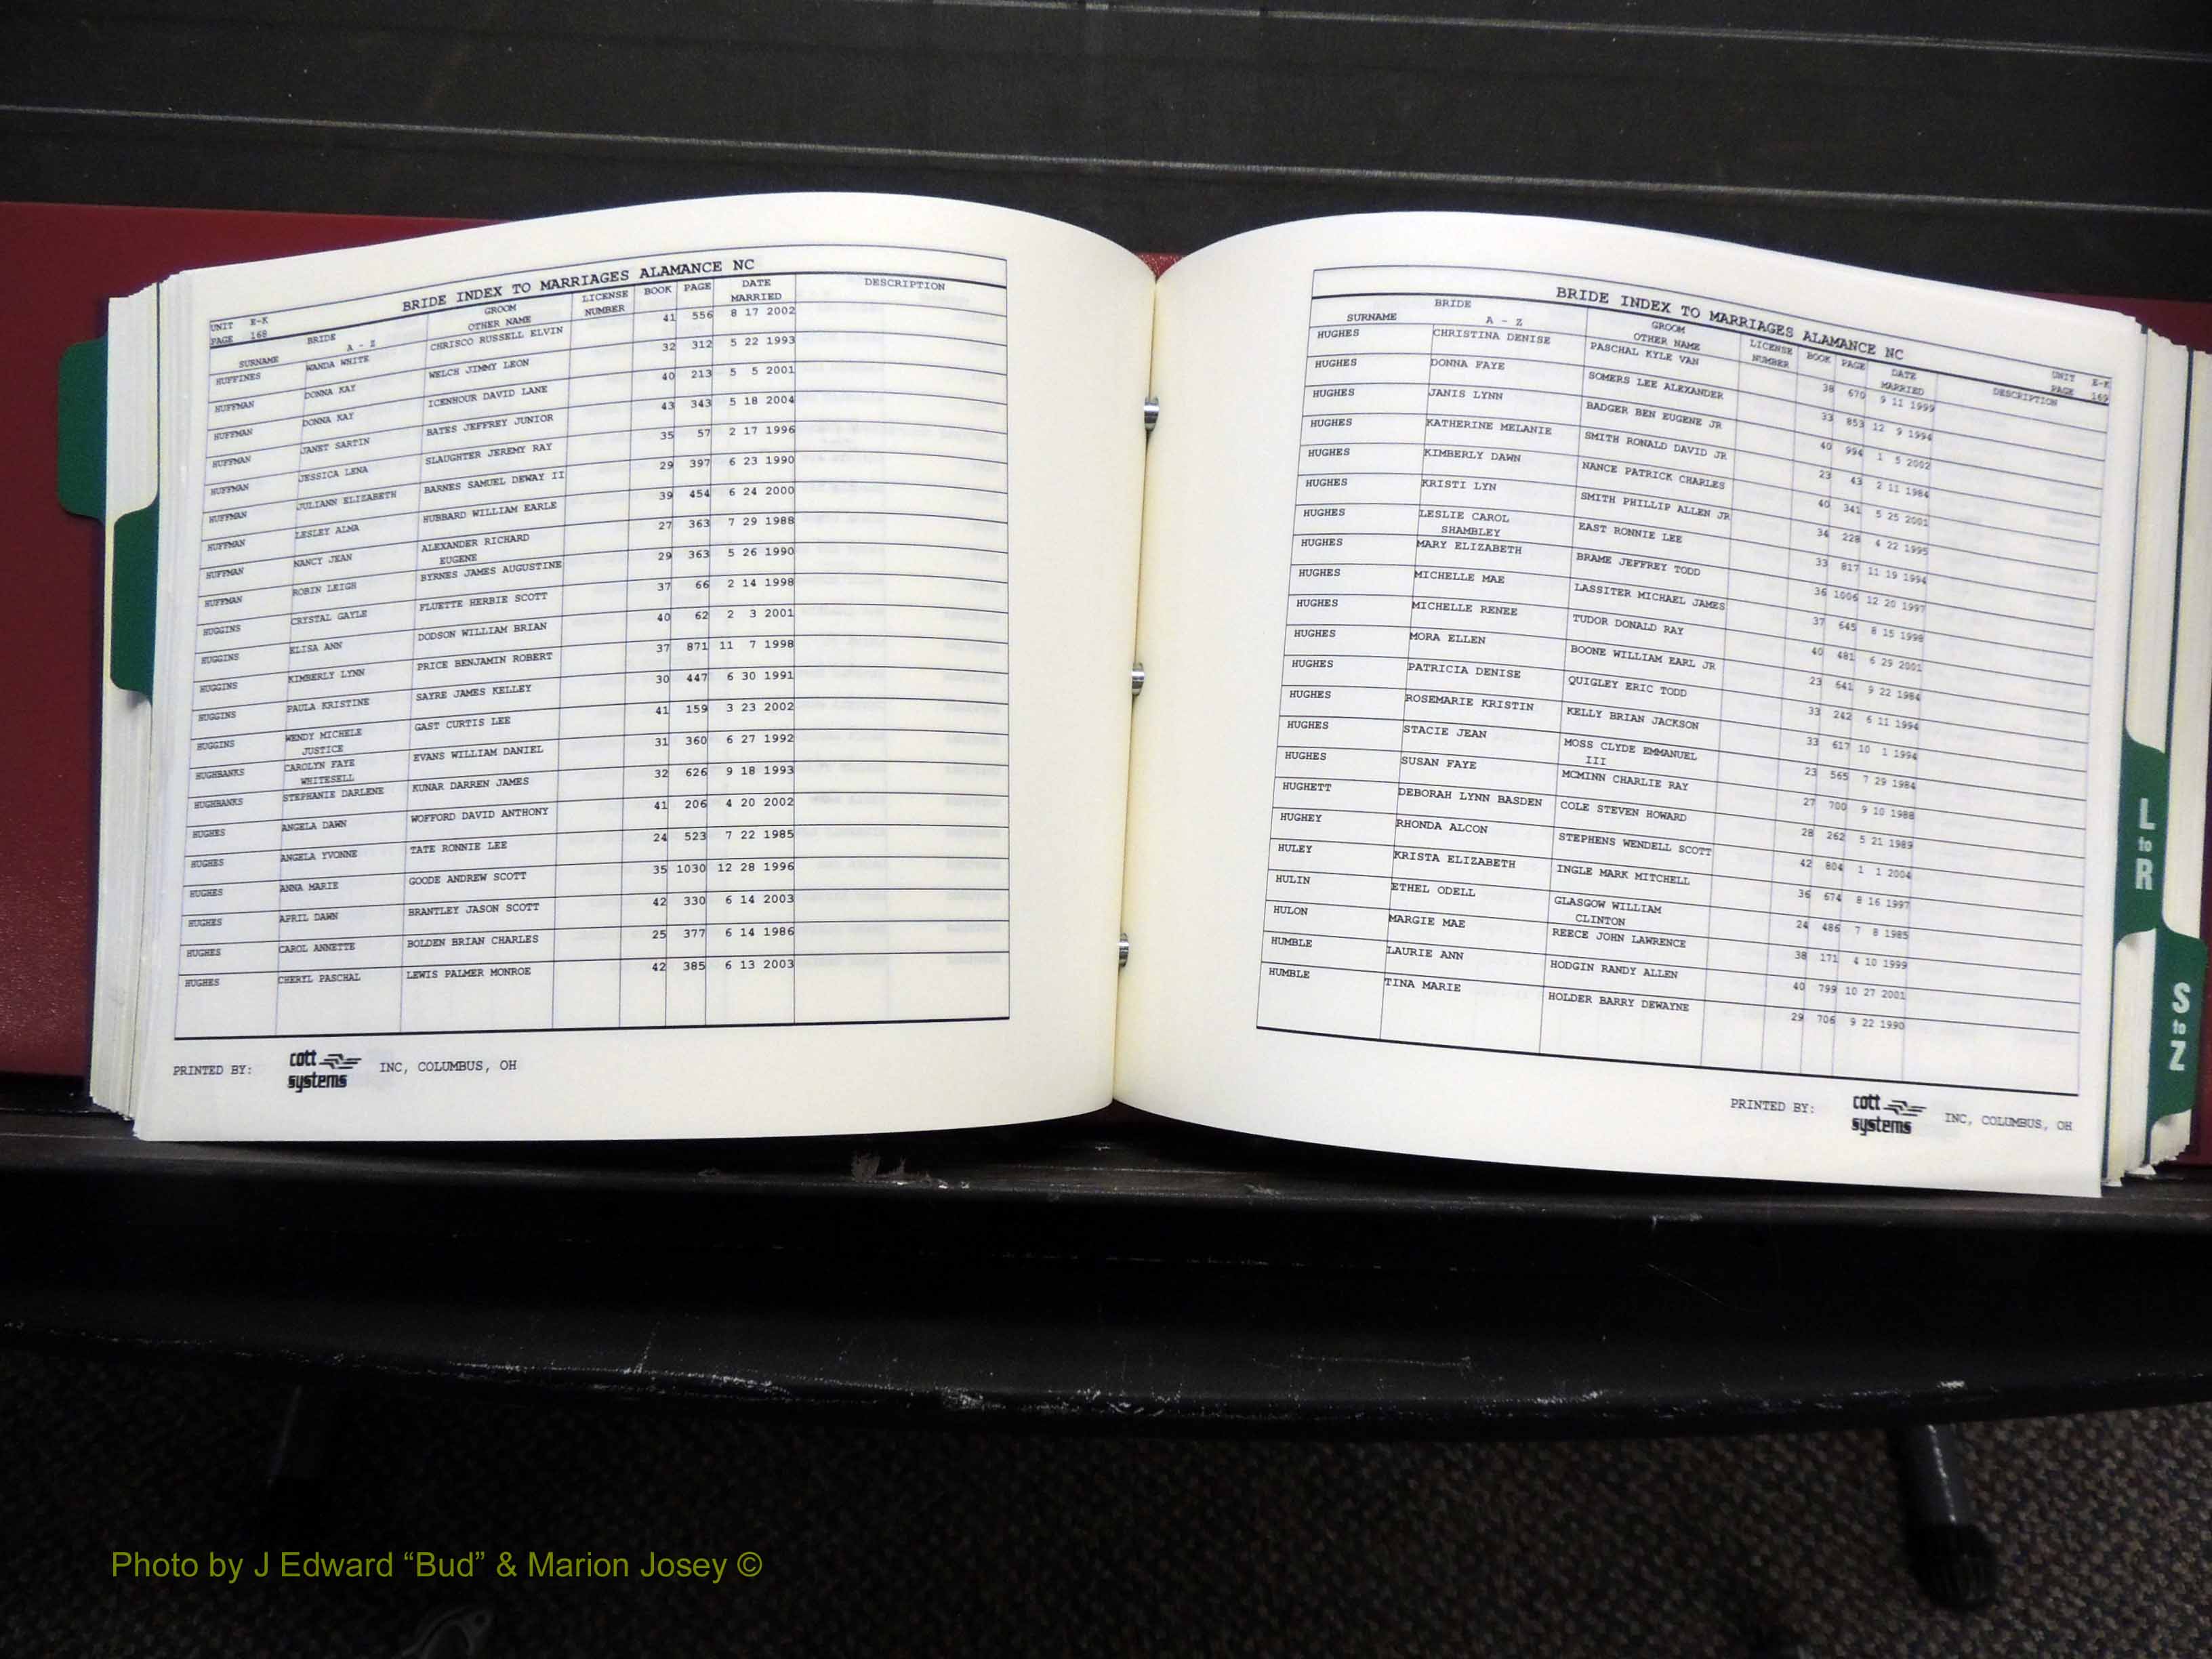 BRIDE INDEX TO MARRIAGES ALAMANCE NC
UNIT E-K
PAGE 168
SURNAME BRIDE A - Z GROOM OTHER NAME LICENSE NUMBER BOOK PAGE DATE MARRIED DESCRIPTION
HUFFINES WANDA WHITE CHRISCO RUSSELL ELVIN 41 556 8 17 2002
HUFFMAN DONNA KAY WELCH JIMMY LEON 32 312 5 22 1993
HUFFMAN DONNA KAY ICENHOUR DAVID LANE 40 213 5 5 2001
HUFFMAN JANET SARTIN BATES JEFFREY JUNIOR 43 343 5 18 2004
HUFFMAN JESSICA LENA SLAUGHTER JEREMY RAY 35 57 2 17 1996
HUFFMAN JULIANN ELIZABETH BARNES SAMUEL DEWAY II 29 397 6 23 1990
HUFFMAN LESLEY ALMA HUBBARD WILLIAM EARLE 39 454 6 24 2000
HUFFMAN NANCY JEAN ALEXANDER RICHARD EUGENE 27 363 7 29 1988
HUFFMAN ROBIN LEIGH BYRNES JAMES AUGUSTINE 29 363 5 26 1990
HUGGINS CRYSTAL GAYLE FLUETTE HERBIE SCOTT 37 66 2 14 1998
HUGGINS ELISA ANN DODSON WILLIAM BRIAN 40 62 2 3 2001
HUGGINS KIMBERLY LYNN PRICE BENJAMIN ROBERT 37 871 11 7 1998
HUGGINS PAULA KRISTINE SAYRE JAMES KELLEY 30 447 6 30 1991
HUGGINS WENDY MICHELE JUSTICE GAST CURTIS LEE 41 159 3 23 2002
HUGHBANKS CAROLYN FAYE WHITESELL EVANS WILLIAM DANIEL 31 360 6 27 1992
HUGHBANKS STEPHANIE DARLENE KUNAR DARREN JAMES 32 626 9 18 1993
HUGHES ANGELA DAWN WOFFORD DAVID ANTHONY 41 206 4 20 2002
HUGHES ANGELA YVONNE TATE RONNIE LEE 24 523 7 22 1985
HUGHES ANNA MARIE GOODE ANDREW SCOTT 35 1030 12 28 1996
HUGHES APRIL DAWN BRANTLEY JASON SCOTT 42 330 6 14 2003
HUGHES CAROL ANNETTE BOLDEN BRIAN CHARLES 25 377 6 14 1986
HUGHES CHERYL PASCHAL LEWIS PALMER MONROE 42 385 6 13 2003
PRINTED BY: cott systems INC, COLUMBUS, OH
BRIDE INDEX TO MARRIAGES ALAMANCE NC
UNIT E-K
PAGE 169
SURNAME BRIDE A - Z GROOM OTHER NAME LICENSE NUMBER BOOK PAGE DATE MARRIED DESCRIPTION
HUGHES CHRISTINA DENISE PASCHAL KYLE VAN 38 670 9 11 1999
HUGHES DONNA FAYE SOMERS LEE ALEXANDER 33 853 12 9 1994
HUGHES JANIS LYNN BADGER BEN EUGENE JR 40 994 1 5 2002
HUGHES KATHERINE MELANIE SMITH RONALD DAVID JR 23 43 2 11 1984
HUGHES KIMBERLY DAWN NANCE PATRICK CHARLES 40 341 5 25 2001
HUGHES KRISTI LYN SMITH PHILLIP ALLEN JR 34 228 4 22 1995
HUGHES LESLIE CAROL SHAMBLEY EAST RONNIE LEE 33 817 11 19 1994
HUGHES MARY ELIZABETH BRAME JEFFREY TODD 36 1006 12 20 1997
HUGHES MICHELLE MAE LASSITER MICHAEL JAMES 37 645 8 15 1998
HUGHES MICHELLE RENEE TUDOR DONALD RAY 40 481 6 29 2001
HUGHES MORA ELLEN BOONE WILLIAM EARL JR 23 641 9 22 1984
HUGHES PATRICIA DENISE QUIGLEY ERIC TODD 33 242 6 11 1994
HUGHES ROSEMARIE KRISTIN KELLY BRIAN JACKSON 33 617 10 1 1994
HUGHES STACIE JEAN MOSS CLYDE EMMANUEL III 23 565 7 29 1984
HUGHES SUSAN FAYE MCMINN CHARLIE RAY 27 700 9 10 1988
HUGHETT DEBORAH LYNN BASDEN COLE STEVEN HOWARD 28 262 5 21 1989
HUGHEY RHONDA ALCON STEPHENS WENDELL SCOTT 42 804 1 1 2004
HULEY KRISTA ELIZABETH INGLE MARK MITCHELL 36 674 8 16 1997
HULIN ETHEL ODELL GLASGOW WILLIAM CLINTON 24 486 7 8 1985
HULON MARGIE MAE REECE JOHN LAWRENCE 38 171 4 10 1999
HUMBLE LAURIE ANN HODGIN RANDY ALLEN 40 799 10 27 2001
HUMBLE TINA MARIE HOLDER BARRY DEWAYNE 29 706 9 22 1990
PRINTED BY: cott systems INC, COLUMBUS, OH
L to R
S to Z
Photo by J Edward “Bud” & Marion Josey ©